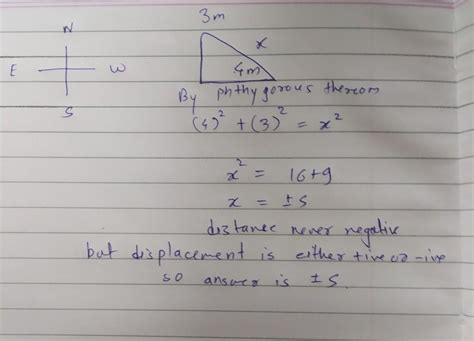 N
E W
S
3m
x
4m
By phthygorous therom
(4)² + (3)² = x²
x² = 16+9
x = ±5
distance never negative
but displacement is either +ive or -ive
so answer is ±5.